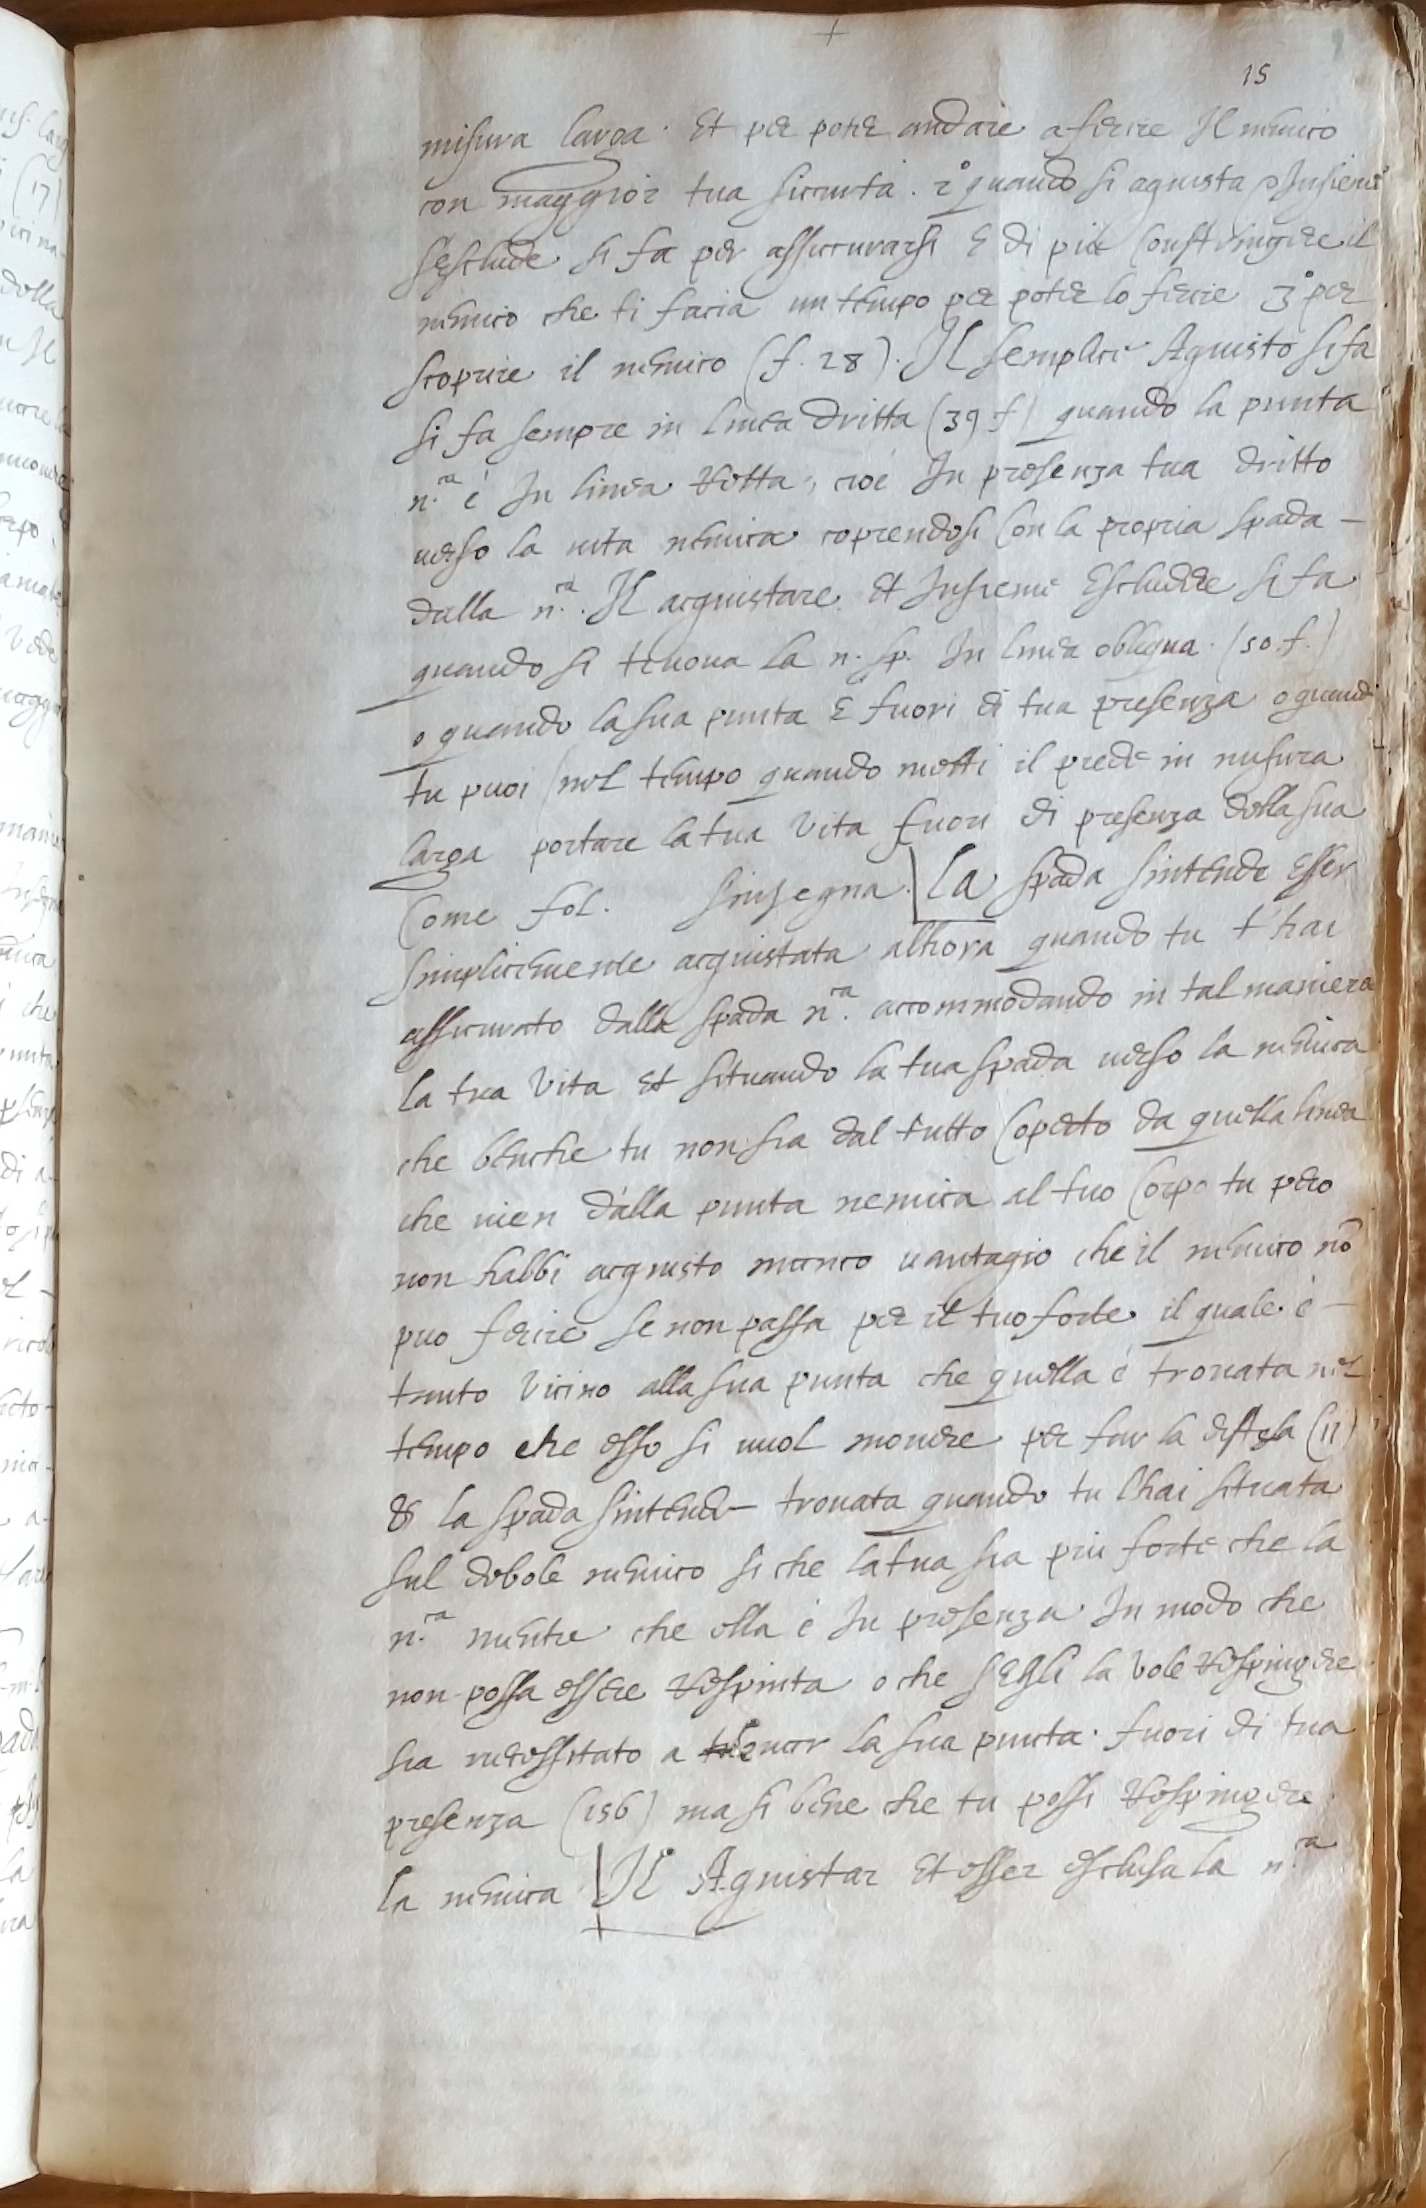 15
misura larga. Et per poter andare a ferire Il nemico
con maggior tua sicurta. 2º quando si aquista et Insieme
s'esclude si fa per assicurarsi E di più Constringere il
nemico che ti facia un tempo per poterlo ferire 3º per
scoprire il nemico (f. 28). Il semplice Aquisto si fa
si fa sempre in linea dritta (39 f) quando la punta
n.ca è In linea Retta, cioè In presenza tua dritto
verso la vita nemica coprendosi Con la propria spada –
dalla n.ca. Il acquistare Et Insieme Escludere si fa
quando si truova la n. sp. In linea obliqua. (50. f.)
o quando la sua punta E fuori di tua presenza o quando
tu puoi nel tempo quando metti il piede in misura
larga portare la tua Vita fuori di presenza della sua
Come fol. s'insegna. La spada s'intende Esser
simplicemente acquistata alhora quando tu t'hai
assicurato dalla spada n.ca accommodando in tal maniera
la tua Vita Et situando la tua spada verso la nemica
che benche tu non sia dal tutto Coperto da quella linea
che vien dalla punta nemica al tuo Corpo tu pero
non habbi acquisto manco vantagio che il nemico nō
puo ferire se non passa per il tuo forte il quale è –
tanto Vicino alla sua punta che quella è trovata nel
tempo che esso si vuol movere per far la (11)
& la spada s'intende trovata quando tu l'hai situata
sul debole nemico si che la tua sia più forte che la
n.ca mentre che ella è In presenza In modo che
non possa essere Respinta o che s'Egli la vole Respingere
sia necessitato a la sua punta. fuori di tua
presenza (156) ma si bene che tu possi Respingere
la nemica. Il Aquistar Et esser esclusa la n.ca